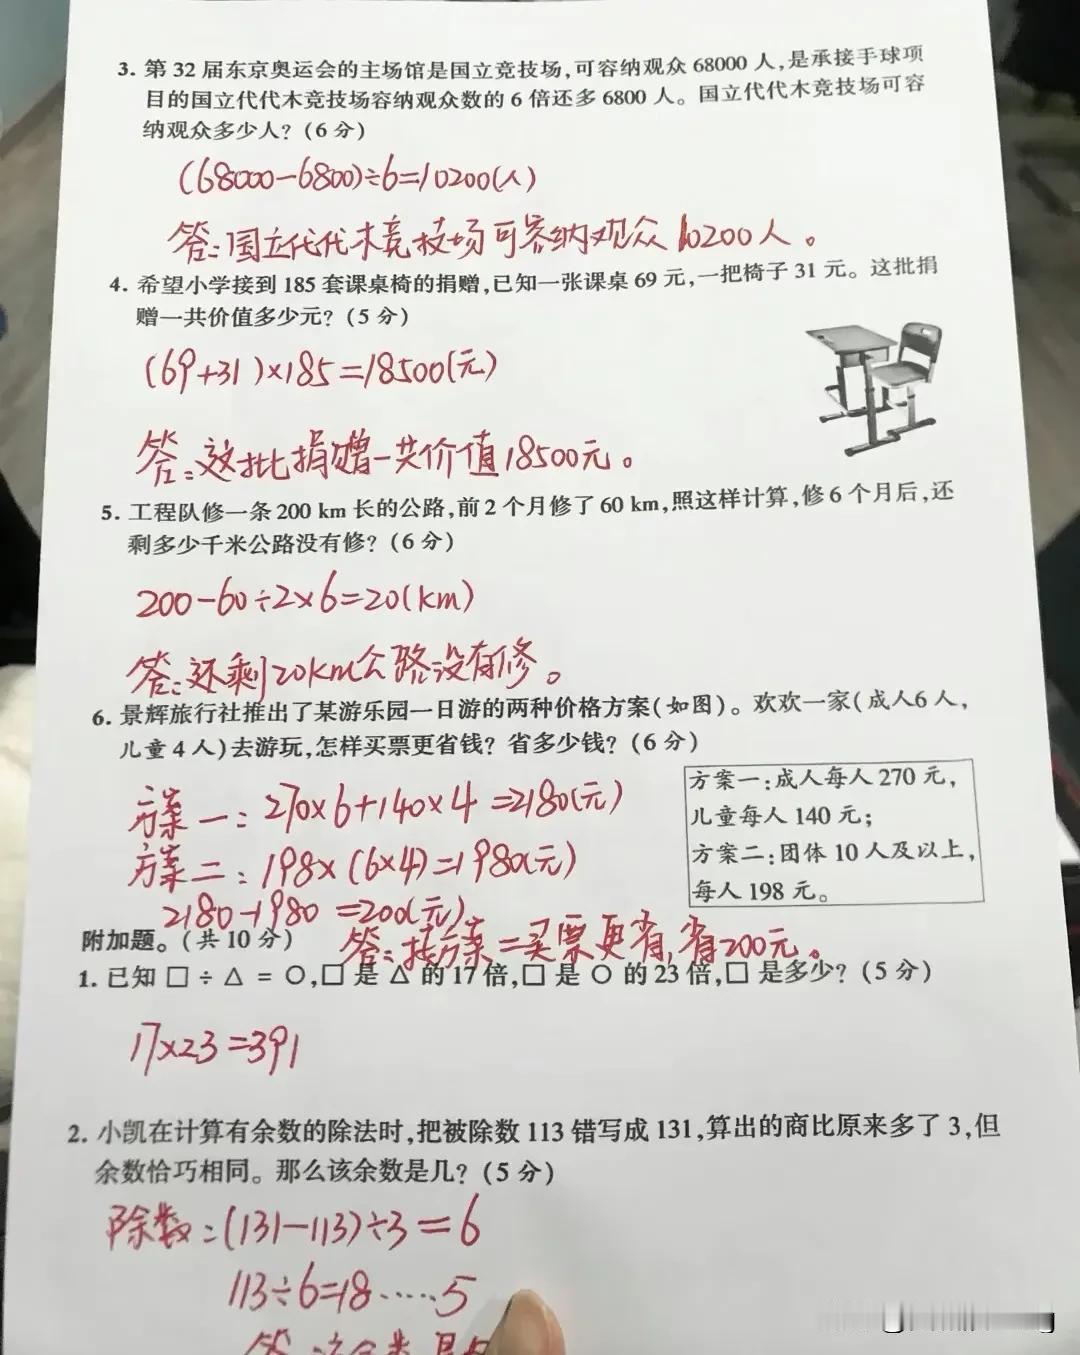 3. 第 32 届东京奥运会的主场馆是国立竞技场,可容纳观众 68000 人,是承接手球项
目的国立代代木竞技场容纳观众数的 6 倍还多 6800 人。国立代代木竞技场可容
纳观众多少人？(6 分)
(68000-6800)÷6=10200(人)
答:国立代代木竞技场可容纳观众10200人。
4. 希望小学接到 185 套课桌椅的捐赠,已知一张课桌 69 元,一把椅子 31 元。这批捐
赠一共价值多少元？(5 分)
(69+31)×185=18500(元)
答:这批捐赠一共价值18500元。
5. 工程队修一条 200 km 长的公路,前 2 个月修了 60 km,照这样计算,修 6 个月后,还
剩多少千米公路没有修？(6 分)
200-60÷2×6=20(km)
答:还剩20km公路没有修。
6. 景辉旅行社推出了某游乐园一日游的两种价格方案(如图)。欢欢一家(成人6 人,
儿童 4 人)去游玩,怎样买票更省钱？省多少钱？(6 分)
方案一:成人每人 270 元,
儿童每人 140 元;
方案二:团体 10 人及以上,
每人 198 元。
方案一:270×6+140×4=2180(元)
方案二:198×(6×4)=1980(元)
2180-1980=200(元)
答:按方案二买票更省,省200元。
附加题。(共 10 分)
1. 已知 □ ÷ △ = ○,□ 是 △ 的 17 倍,□ 是 ○ 的 23 倍,□ 是多少？(5 分)
17×23=391
2. 小凯在计算有余数的除法时,把被除数 113 错写成 131,算出的商比原来多了 3,但
余数恰巧相同。那么该余数是几？(5 分)
除数:(131-113)÷3=6
113÷6=18……5